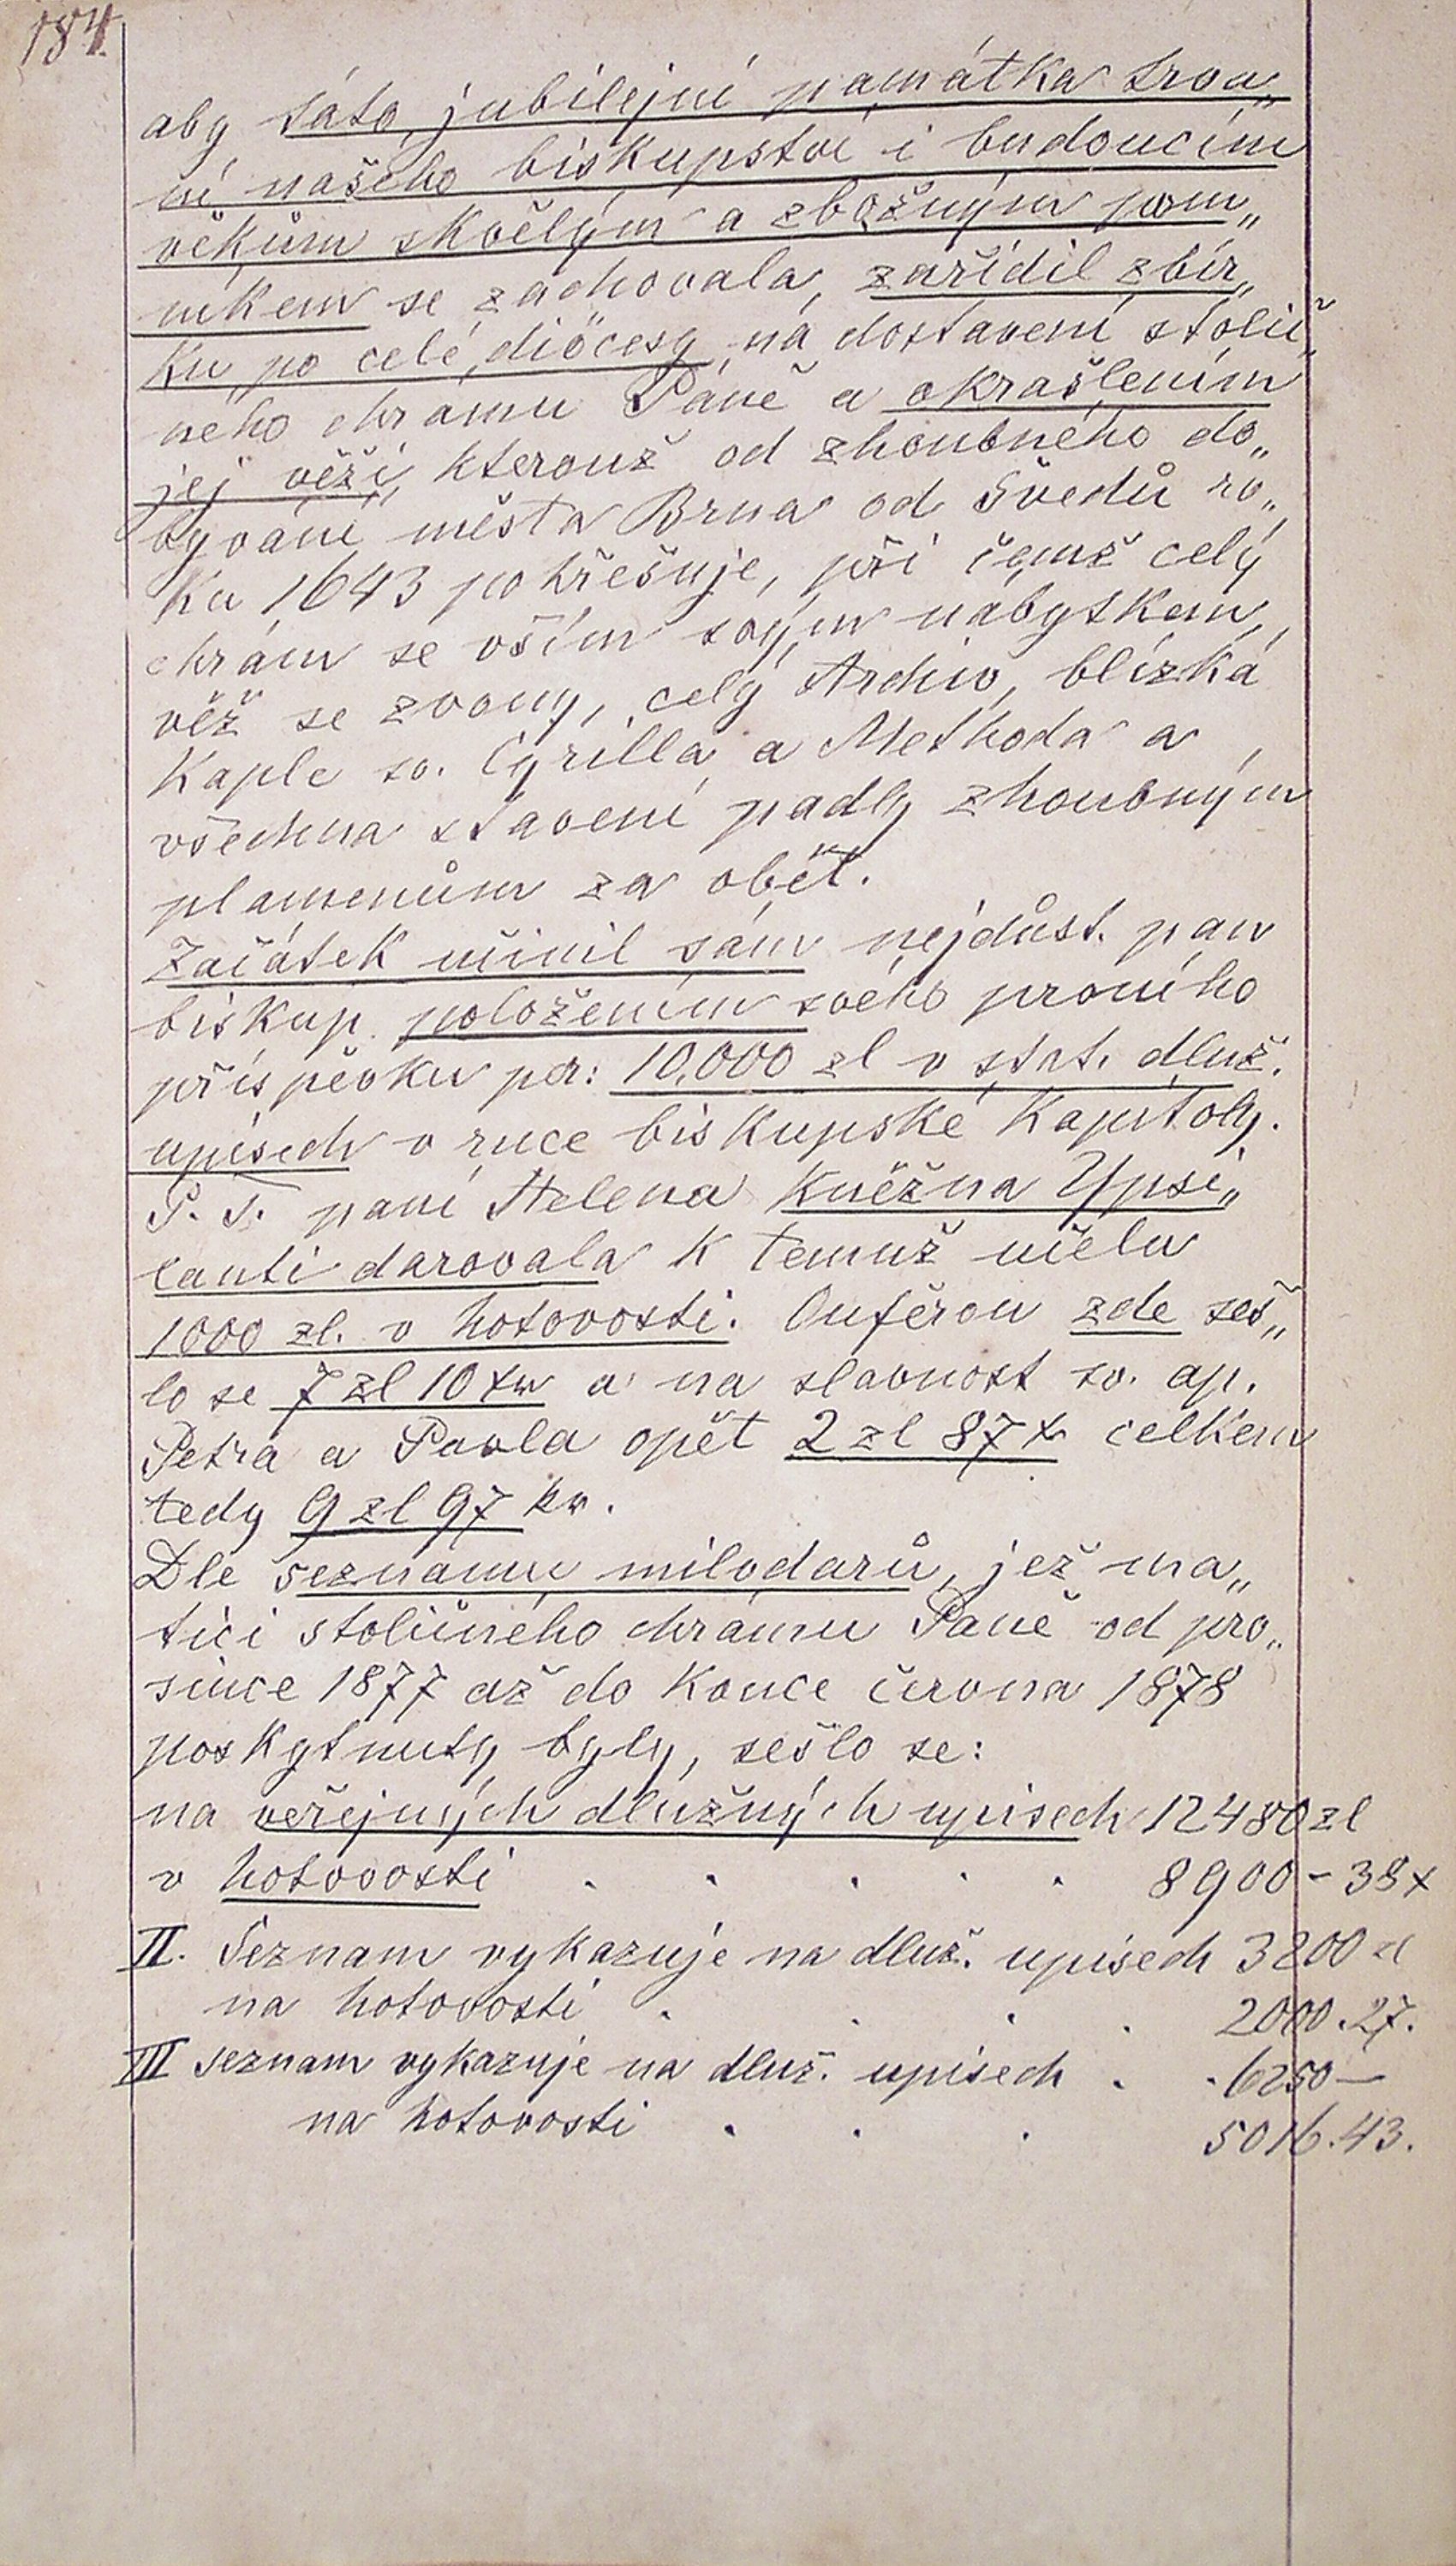 184.
aby táto jubilejní památka trvá„
ní našeho biskupství i budoucím
věkům skvělým a zbožným pom„
níkem se zachovala, zařídil zbír„
ku po celé diöcesy na dostavení stolič„
ného chrámu Páně a okrašlením
jej věži, kterouž od zhoubného do„
bývání města Brna od Švedů ro„
ku 1643 pohřešuje, při čemž celý
chrám se vším svým nábytkem,
věž se zvony, celý Archiv, blízká
kaple sv. Cyrilla a Methoda a
všechna stavení padly zhoubným
plamenům za oběť.
Začátek učinil sám nejdůst. pan
biskup položením svého prvního
příspěvku per: 10,000 zl v stat. dluž.
upisech v ruce biskupské kapitoly.
P. T. paní Helena kněžna Ypsi„
lanti darovala k temuž účelu
1000 zl. v hotovosti. Ouférou zde seš„
lo se 7 zl 10 kr a na slavnost sv. ap.
Petra a Pavla opět 2 zl 87 x celkem
tedy 9 zl 97 kr.
Dle seznamu milodarů, jež ma„
tici stoličného chrámu Páně od pro„
since 1877 až do konce června 1878
poskytnuty byly, sešlo se:
na veřejných dlužných upisech 12480 zl
v hotovosti . . . . . 8900 - 38 x
II. Seznam vykazuje na dluž. upisech 3200 zl
na hotovosti . . . . 2000.27.
III seznam vykazuje na dluž. upisech . . 6250 —
na hotovosti . . . 5016.43.